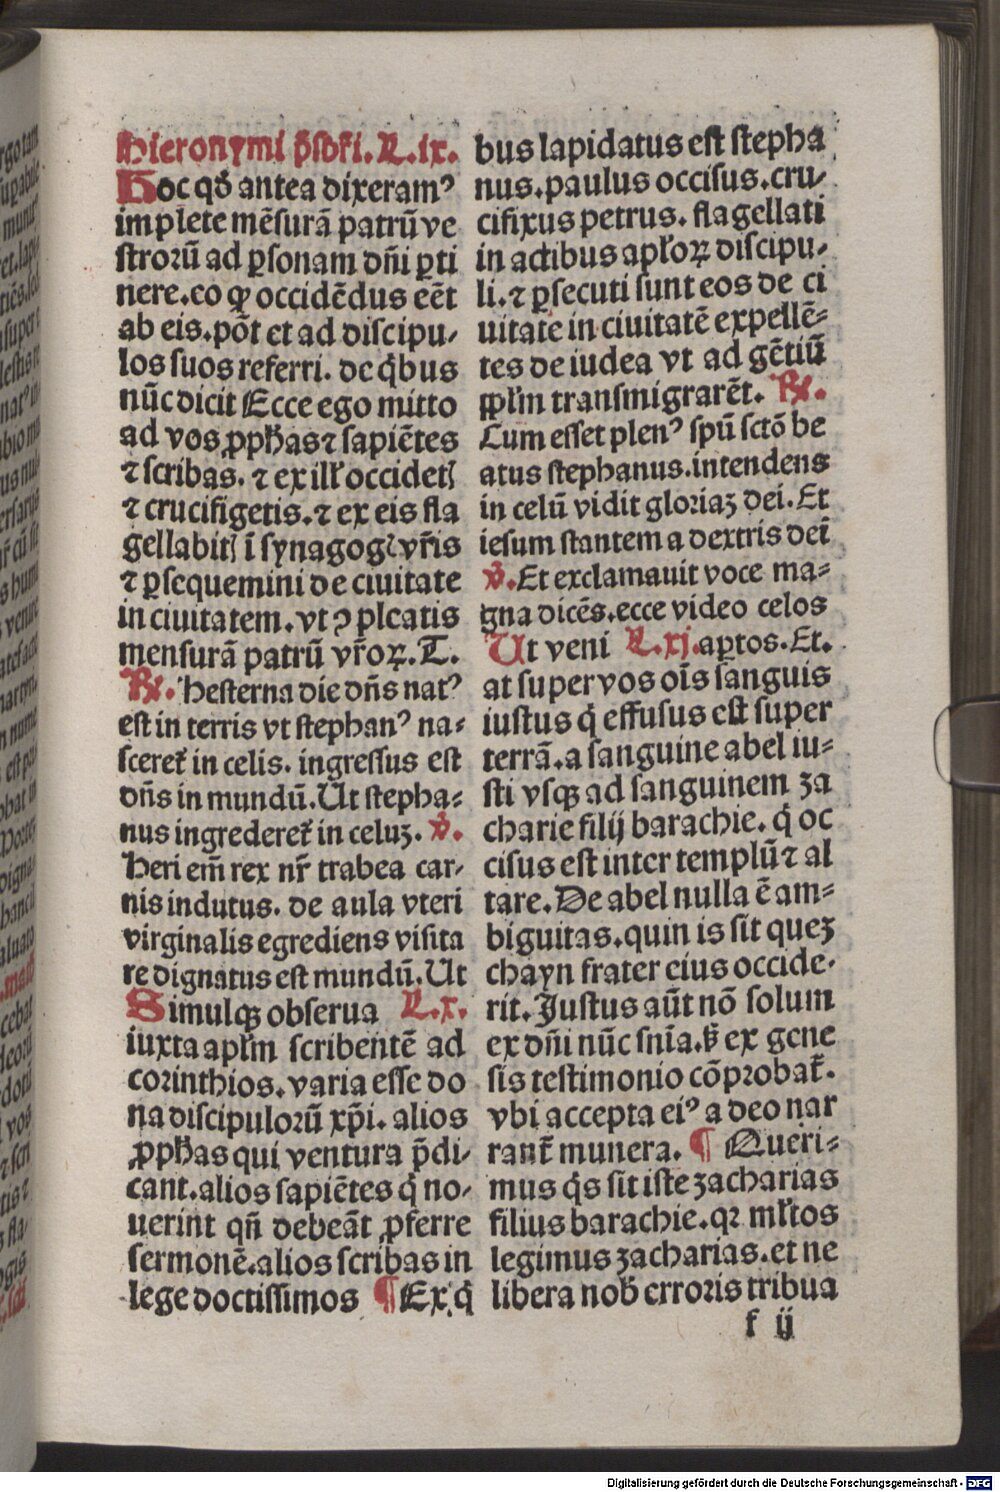 Hieronymi p̄sbr̄i. L. ix.
Hoc qd̄ antea dixeramꝰ
implete mēsurā patrū ve
strorū ad ꝑsonam dn̄i ꝑti
nere.eo ꝙ occidēdus eēt
ab eis.pōt et ad discipu-
los suos referri. de q̄bus
nūc dicit Ecce ego mitto
ad vos ꝓpħas ⁊ sapiētes
⁊ scribas. ⁊ ex ill̄ occidetꝭ
⁊ crucifigetis.⁊ ex eis fla
gellabitꝭ ī synagogꝭ vr̄is
⁊ ꝑsequemini de ciuitate
in ciuitatem.vt ꝯpleatis
mensurā patrū vr̄oꝝ. T.
R̷. Hesterna die dn̄s natꝰ
est in terris vt stephanꝰ na-
sceret̄ in celis. ingressus est
dn̄s in mundū.Ut stepha-
nus ingrederet̄ in celuꝫ. v̄.
Heri em̄ rex nr̄ trabea car-
nis indutus. de aula vteri
virginalis egrediens visita
re dignatus est mundū.Ut
Simulqꝫ obserua L.x.
iuxta apl̄m scribentē ad
corinthios.varia esse do
na discipulorū xp̄i. alios
ꝓpħas qui ventura p̄di-
cant.alios sapiētes q̄ no-
uerint qn̄ debeāt ꝓferre
sermonē.alios scribas in
lege doctissimos ¶ Ex q̄
bus lapidatus est stepha
nus.paulus occisus.cru-
cifixus petrus. flagellati
in actibus apl̄oꝝ discipu-
li.⁊ ꝑsecuti sunt eos de ci
uitate in ciuitatē expellē-
tes de iudea vt ad gētiū
ppl̄m transmigrarēt. R̷.
Cum esset plenꝰ spū sctō be
atus stephanus.intendens
in celū vidit gloriaꝫ dei.Et
iesum stantem a dextris dei
v̄. Et exclamauit voce ma-
gna dicēs.ecce video celos
Ut veni L.xj. aꝑtos.Et.
at super vos oīs sanguis
iustus q̄ effusus est super
terrā.a sanguine abel iu-
sti vsqꝫ ad sanguinem za
charie filij barachie. q̄ oc
cisus est inter templū ⁊ al
tare. De abel nulla ē am-
biguitas.quin is sit queꝫ
chayn frater eius occide-
rit. Justus aūt nō solum
ex dn̄i nūc sn̄ia.sꝫ ex gene
sis testimonio cōprobat̄.
vbi accepta eiꝰ a deo nar
rant̄ munera. ¶ Queri-
mus q̄s sit iste zacharias
filius barachie.qꝛ ml̄tos
legimus zacharias.et ne
libera nob̄ erroris tribua
f ij
Digitalisierung gefördert durch die Deutsche Forschungsgemeinschaft - DFG